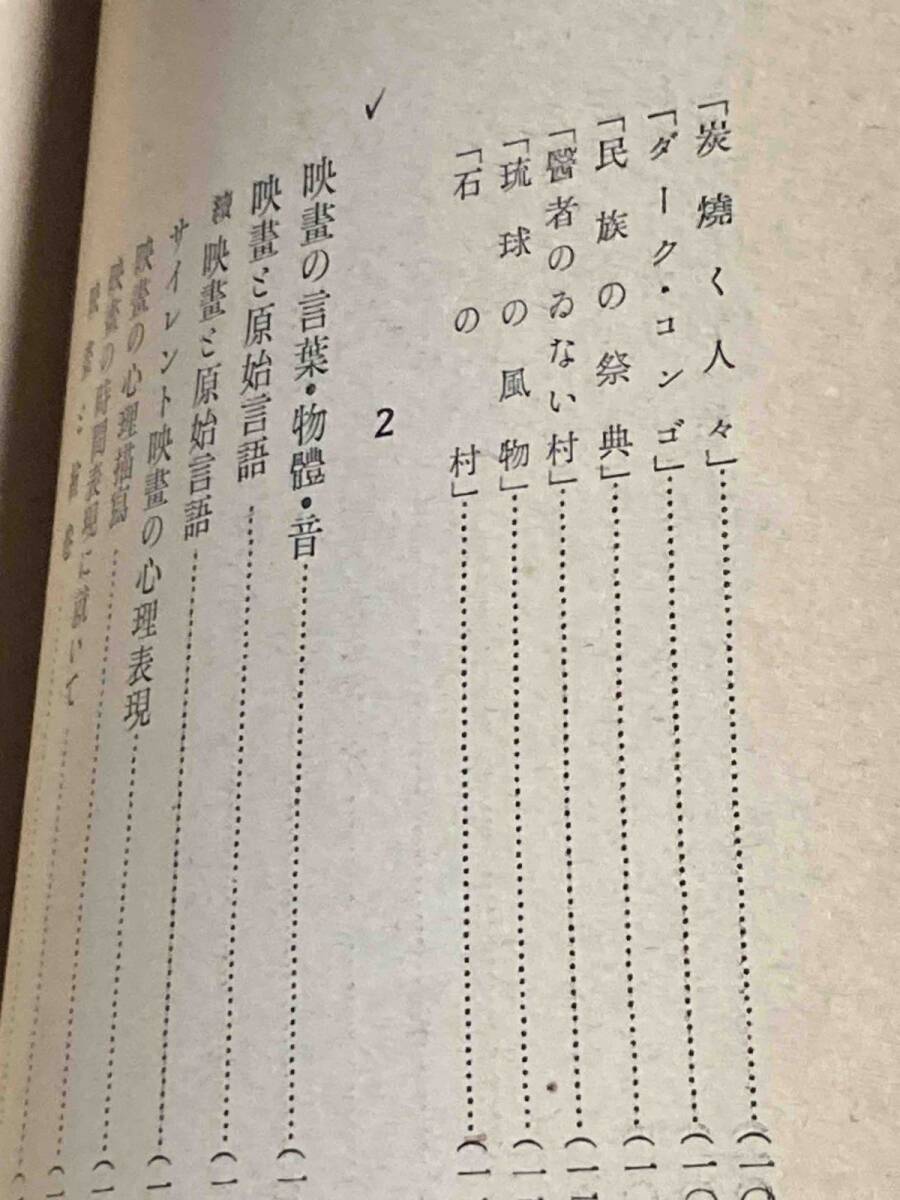 「炭燒く人々」……(一〇
「ダーク・コンゴ」……(一〇
「民族の祭典」……(一
「醫者のゐない村」……(一
「琉球の風物」……(一
「石の村」……(一
2
映畫の言葉・物體・音……(一
映畫と原始言語……(一
續映畫と原始言語……(一
サイレント映畫の心理表現……(一
映畫の心理描寫……(一
映畫の時間表現に就いて……(一
映畫と